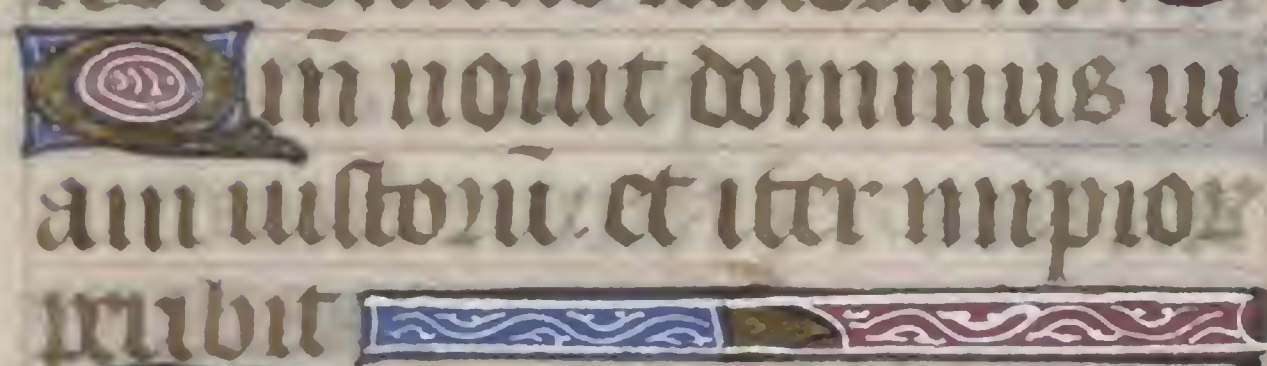 Qm̄ nouit dominus ui
am iustorū: et iter impior
peribit